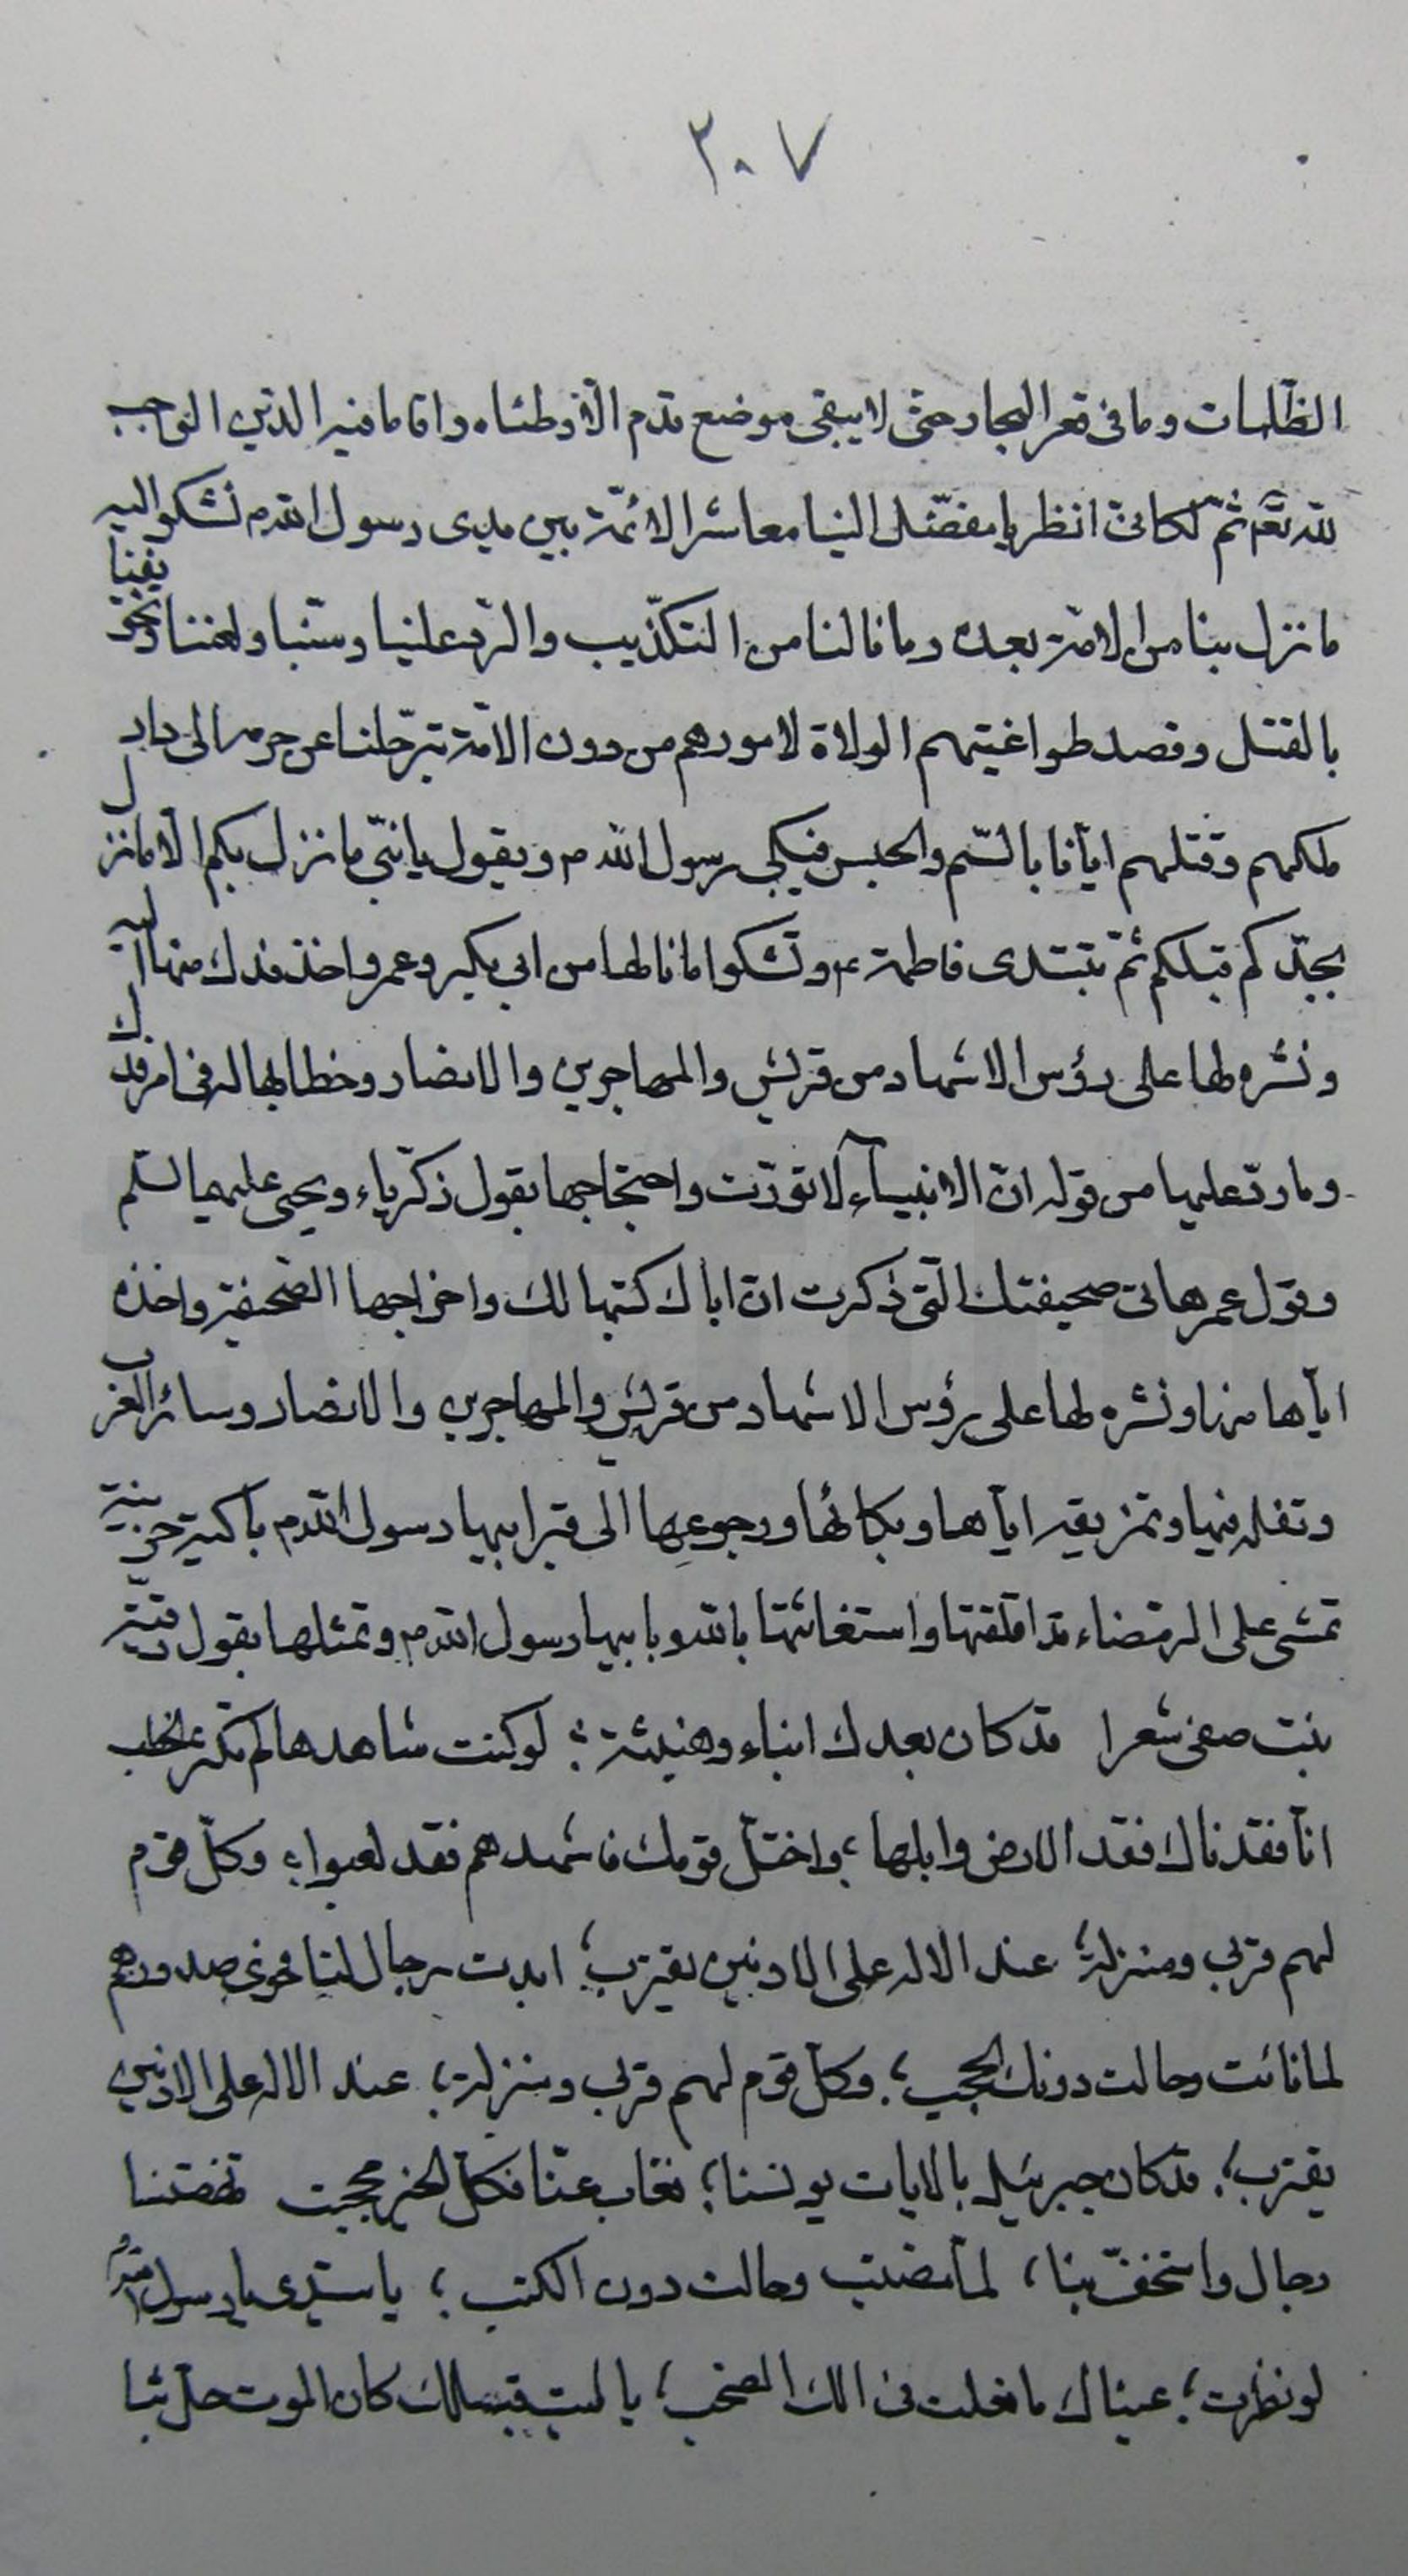 ٢٠٧
الظلمات وما فى قعر البحار حتى لا يبقى موضع قدم الّا وطئاه واقاما فيه الدين الواجب
لله تعم ثمّ لكانى انظر يا مفضّل الينا معاشر الائمّة بين يدى رسول الله م نشكو اليه
ما نزل بنا من الامّة بعده وما نالنا من التكذّيب والردّ علينا وسبّنا ولعننا وتخويفنا
بالقتل وقصد طواغيتهم الولاة لامورهم من دون الامّة بترحّلنا عن حرمه الى دار
ملكهم وقتلهم ايّانا بالسّم والحبس فيبكى رسول الله م ويقول يا بنىّ ما نزل بكم الّا ما نزل
بجدّكم قبلكم ثمّ تبتدى فاطمة ع وتشكوا ما نالها من ابى بكر وعمر واخذ فدك منها
ونشره لها على رؤس الاشهاد من قريش والمهاجرين والانصار وخطابها له فى امر فدك
وما ردّ عليها من قوله انّ الانبيآء لا تورّث واحتجاجها بقول زكريّاء ويحيى عليهما السّلم
وقول عمر هاتى صحيفتك الّتى ذكرت ان اباك كتبها لك واخراجها الصّحيفة واخذه
ايّاها منها ونشره لها على رؤس الاشهاد من قريش والمهاجرين والانصار وسائر العرب
وتفله فيها وتمزيقه ايّاها وبكائها ورجوعها الى قبر ابيها رسول الله م باكية حزينة
تمشى على الرمضاء قد اقلقتها واستغاثتها بالله وبابيها رسول الله م وتمثلها بقول رقيّة
بنت صفى شعرا قد كان بعدك انباء وهنبثة ؛ لو كنت شاهدها لم تكثر الخطب
انّا فقدناك فقد الارض وابلها ؛ واختلّ قومك فاشهدهم فقد لعبوا ؛ وكلّ قوم
لهم قربى ومنزلة ؛ عند الاله على الادنين يقترب ؛ ابدت رجال لنا فحوى صدورهم
لما نائت وحالت دونك الحجب ؛ وكلّ قوم لهم قربى ومنزلة ؛ عند الاله على الادنين
يقترب ؛ قد كان جبرئيل بالايات يونسنا ؛ فغاب عنّا فكلّ الخير محجب تهضّمنا
رجال واستخفّ بنا ؛ لمّا مضيت وحالت دون الكتب ؛ يا سيّدى يا رسول الله
لو نظرت ؛ عيناك ما فعلت فى الك الصحب ؛ يا ليت قبلك كان الموت حلّ بنا